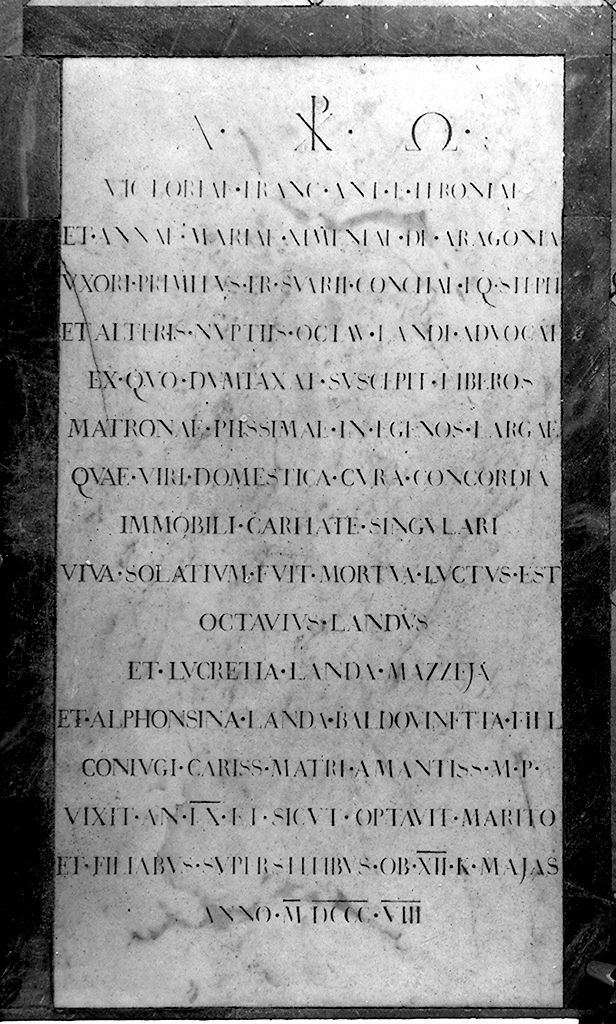 Α · ☧ · Ω ·
VICTORIAE · FRANC · ANT · LEBONIAE
ET · ANNAE · MARIAE · XIMENIAE · DE · ARAGONIA
VXORI · PRIMITVS · FR · SVARII · CONCHAE · EQ · STEPH
ET ALTERIS · NVPTIIS · OCTAV · LANDI · ADVOCAT
EX · QVO · DVMTAXAT · SVSCEPIT · LIBEROS
MATRONAE · PIISSIMAE · IN · EGENOS · LARGAE
QVAE · VIRI · DOMESTICA · CVRA · CONCORDIA
IMMOBILI · CARITATE · SINGVLARI
VIVA · SOLATIVM · FVIT · MORTVA · LVCTVS · EST
OCTAVIVS · LANDVS
ET · LVCRETIA · LANDA · MAZZEJA
ET · ALPHONSINA · LANDA · BALDOVINETTA · FILL
CONIVGI · CARISS · MATRI · AMANTISS · M · P ·
VIXIT · AN · LX · ET · SICVT · OPTAVIT · MARITO
ET · FILIABVS · SVPERSTITIBVS · OB · XII · K · MAJAS
ANNO · M DCCC · VIII